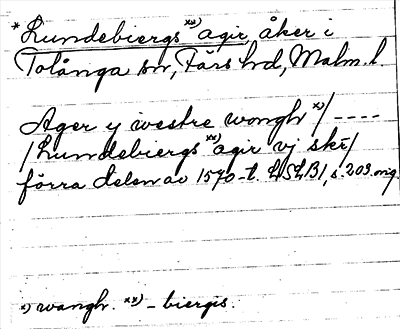 *Lundebiergs xx) agir, åker i
Tolånga sn, Färs hd, Malm. l.
Ager y westre wongh x) / ----
/ Lundebiergs xx) agir vj skr /
förra delen av 1570-t. LSLB 1, s. 203. orig.
x) wangh. xx) - biergis.